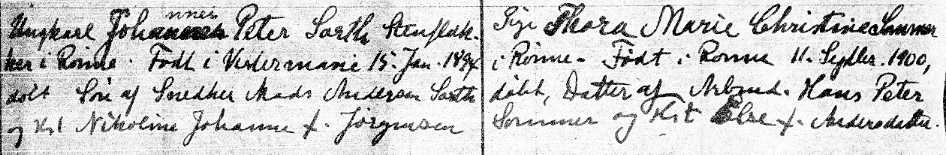 nner
Ungkarl Johannes Peter Sarth Stenhuk-
ker i Rønne. Født i Vestermarie 15. Jan. 1894
døbt Søn af Snedker Mads Andersen Sarth
og Hst Nikoline Johanne f. Jørgensen
Pige Thora Marie Christine Sommer
i Rønne. Født i Rønne 11. Septbr. 1900,
døbt, Datter af Arbmd. Hans Peter
Sommer og Hst Else f. Andersdatter.